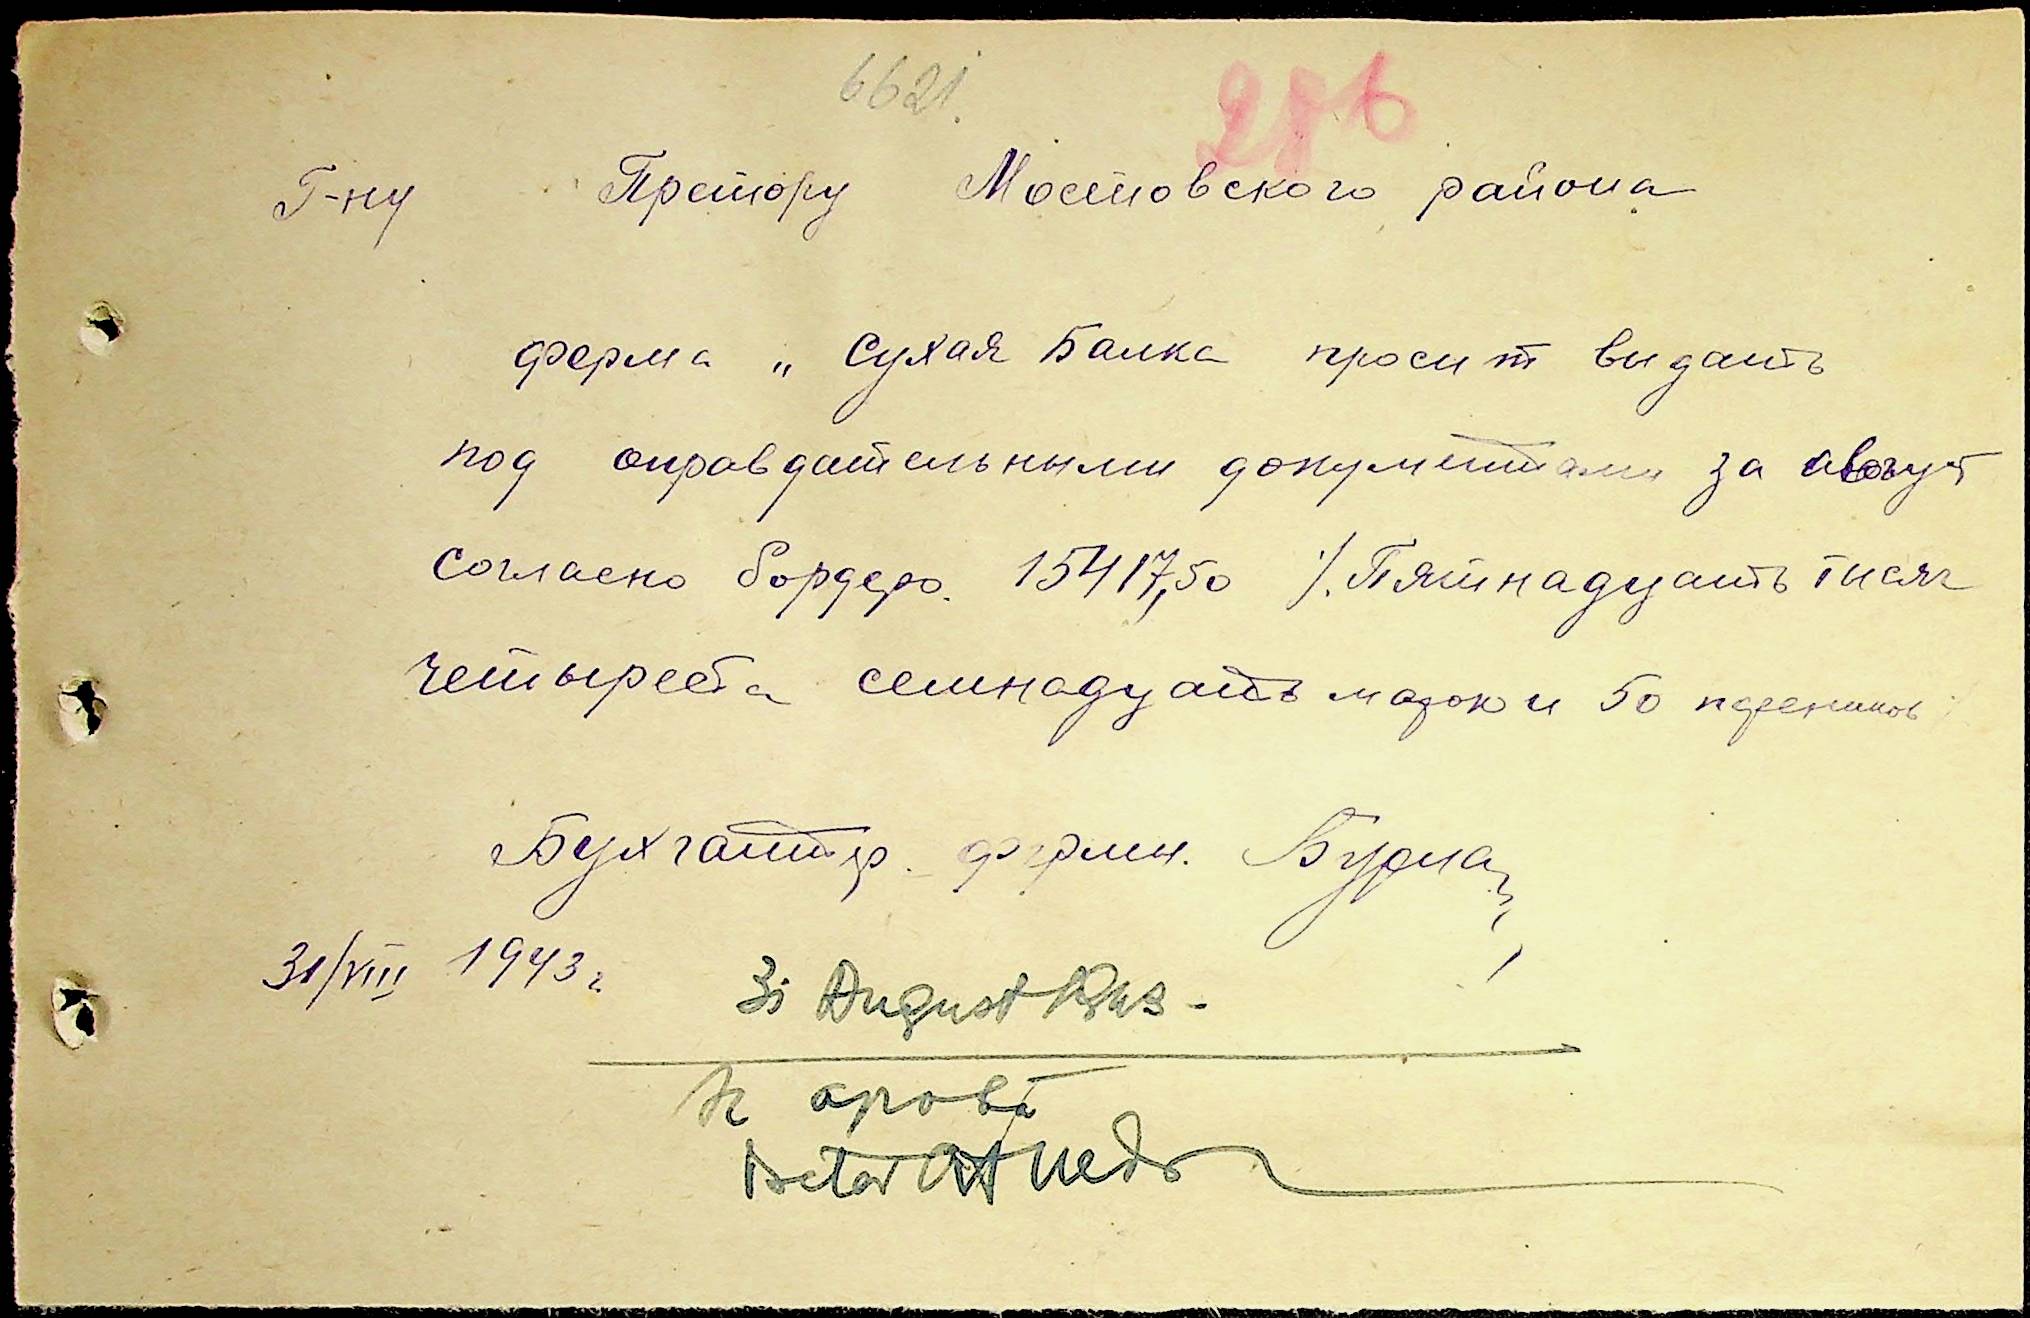 6621.
286
Г-ну Претору Мостовского района
ферма „ Сухая Балка просит выдать
под оправдательными документами за август
согласно бордеро. 15417,50 /. Пятнадцать тысяч
четыреста семнадцать марок и 50 пфеников
Бухгалтер фермы.
31/VIII 1943 г.
31 August 1943 -
Se aprobă